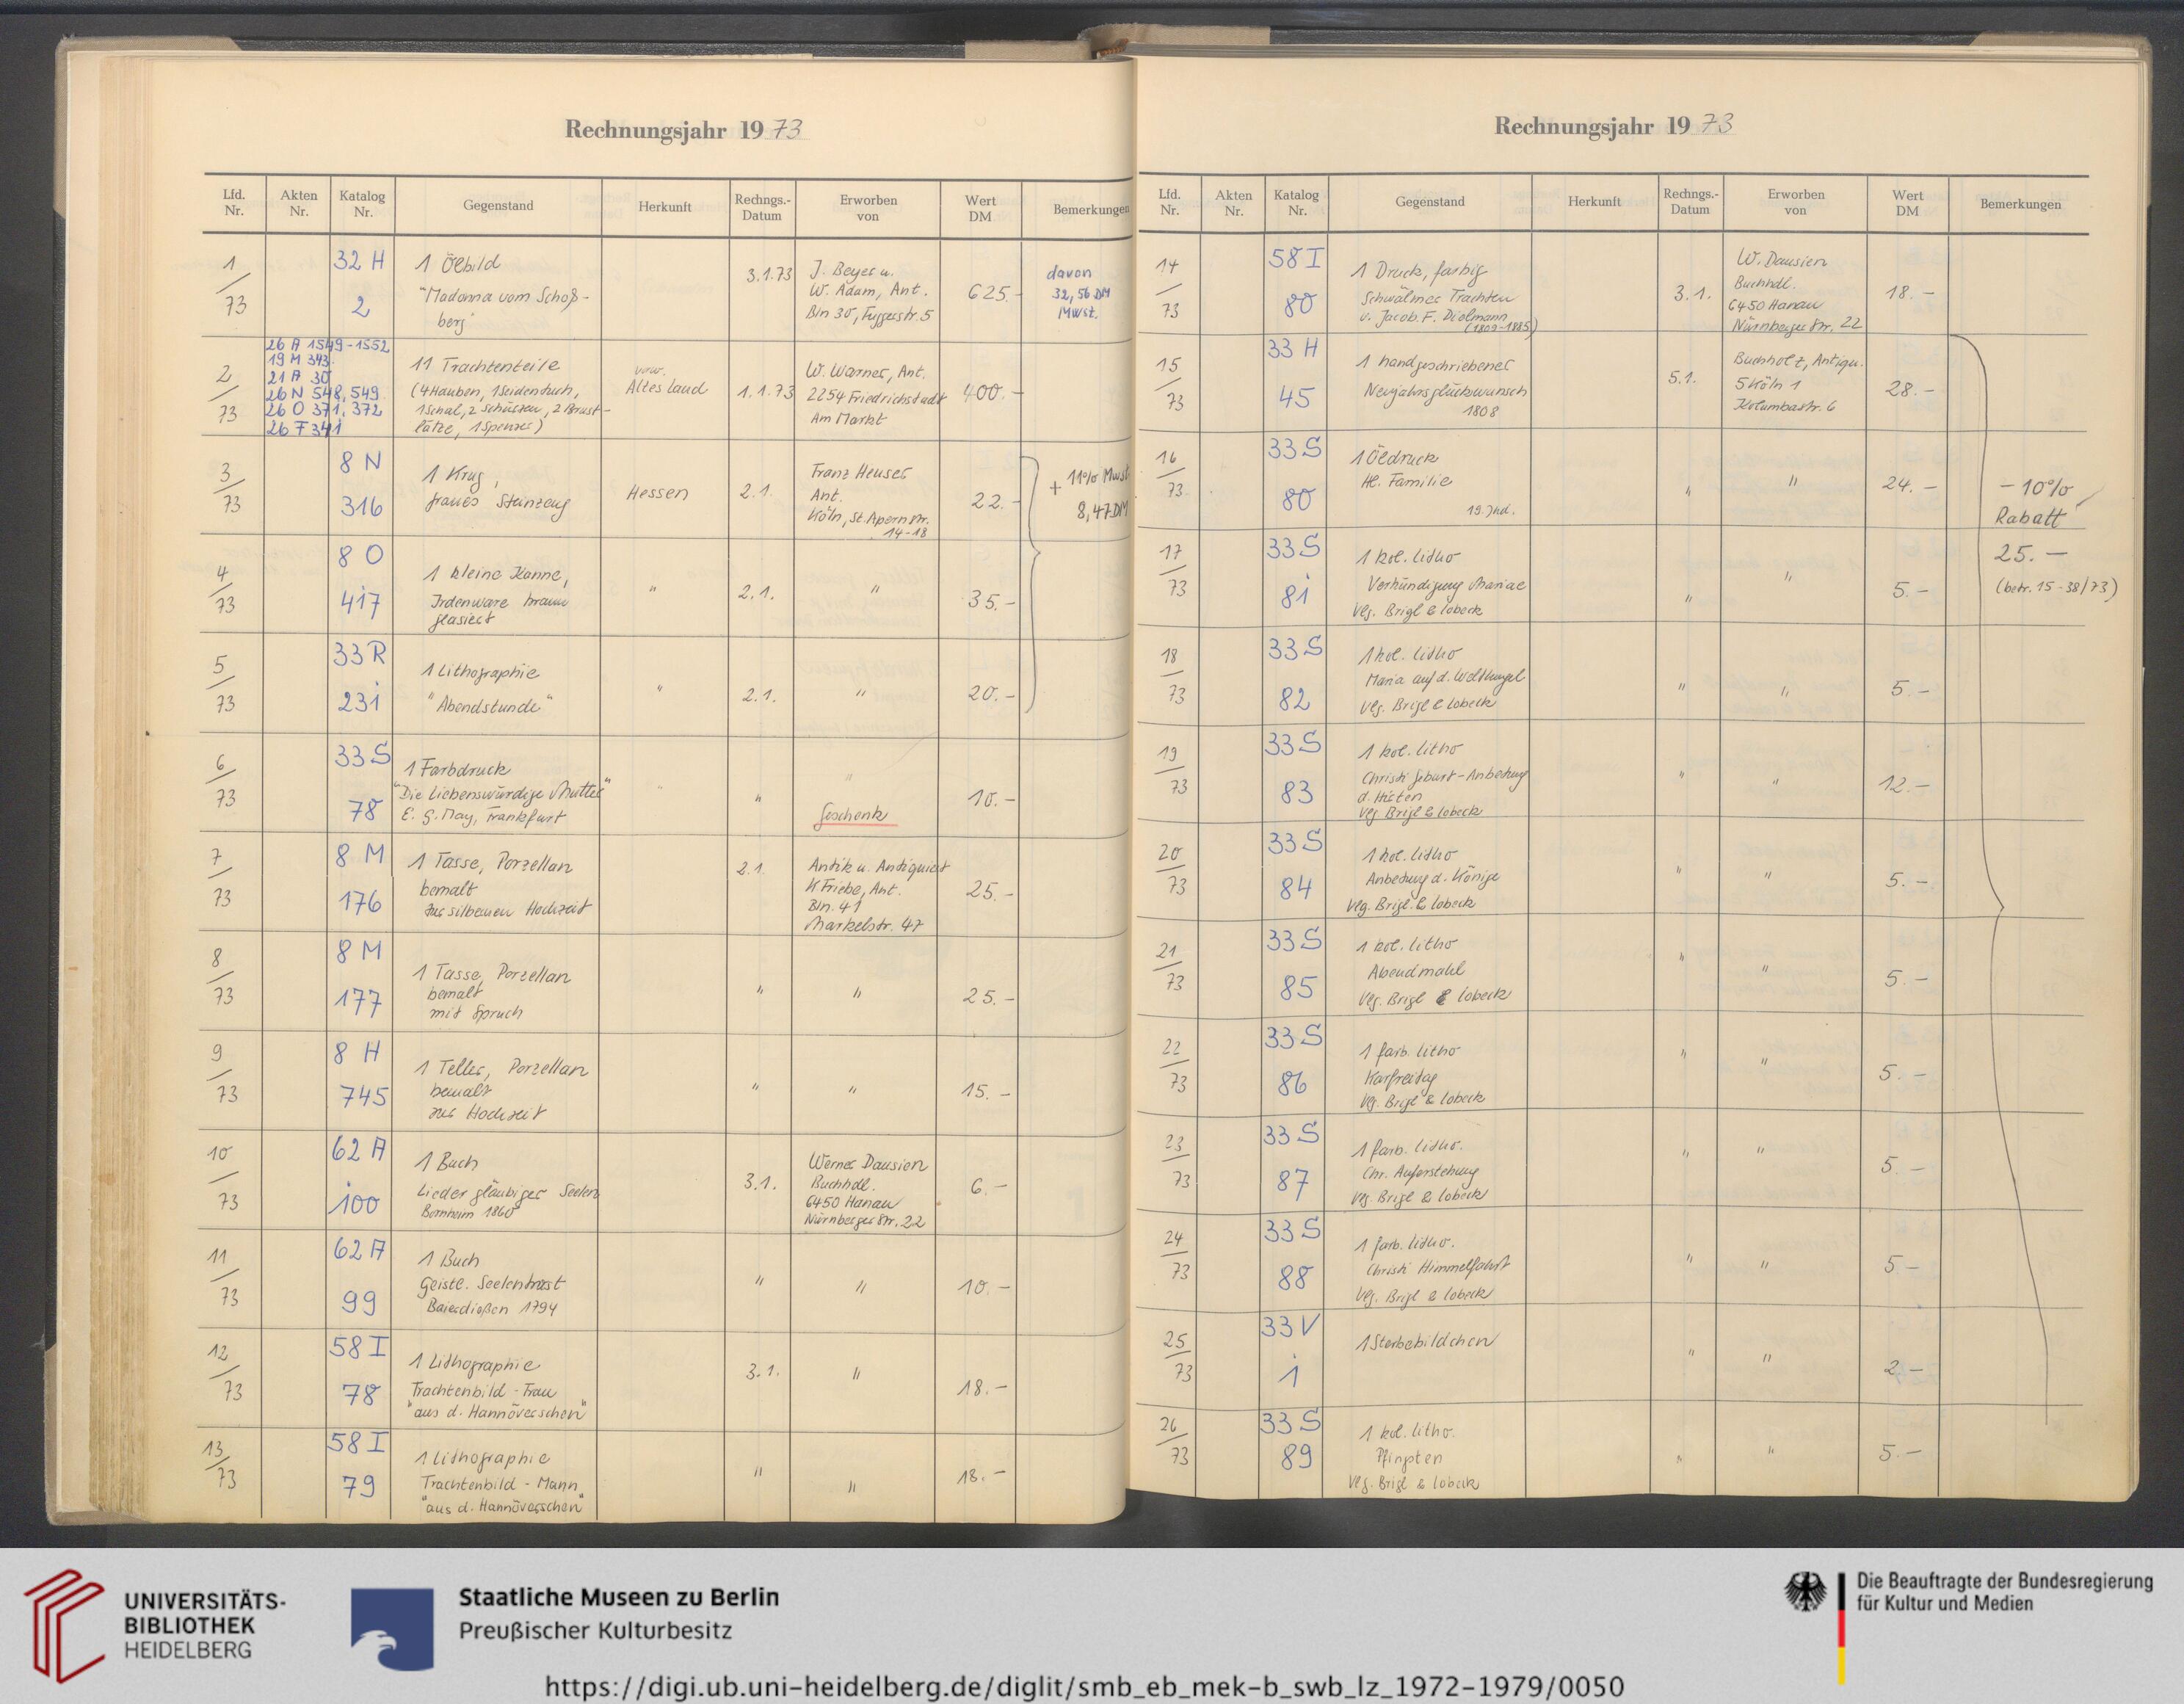 Rechnungsjahr 1973
Lfd. Nr. Akten Nr. Katalog Nr. Gegenstand Herkunft Rechngs.-Datum Erworben von Wert DM Bemerkungen
1/73 32 H 2
1 Ölbild
"Madonna vom Schoß-
berg"
3.1.73
J. Beyer u.
W. Adam, Ant.
Bln 30, Fuggerstr. 5
625.-
davon
32,56 DM
Mwst.
2/73
26 A 1549-1552
19 M 343.
21 A 30
26 N 548, 549
26 O 371, 372
26 F 341
11 Trachtenteile
(4 Hauben, 1 Seidentuch,
1 Schal, 2 Schürzen, 2 Brust-
lätze, 1 Spenzer)
Altes Land
1.1.73
W. Warner, Ant.
2254 Friedrichstadt
Am Markt
400.-
3/73 8 N 316
1 Krug,
graues Steinzeug
Hessen
2.1.
Franz Heuser
Ant.
Köln, St. Apernstr.
14-18
22.-
+ 11% Mwst
8,47 DM
4/73 8 O 417
1 kleine Kanne,
Irdenware braun
glasiert
"
2.1.
"
35.-
5/73 33 R 231
1 Lithographie
"Abendstunde"
"
2.1.
"
20.-
6/73 33 S 78
1 Farbdruck
"Die liebenswürdige Mutter"
E. G. May, Frankfurt
"
"
"
Geschenk
10.-
7/73 8 M 176
1 Tasse, Porzellan
bemalt
zur silbernen Hochzeit
2.1.
Antik u. Antiquiert
K. Friebe, Ant.
Bln. 41
Markelstr. 47
25.-
8/73 8 M 177
1 Tasse, Porzellan
bemalt
mit Spruch
"
"
25.-
9/73 8 H 745
1 Teller, Porzellan
bemalt
zur Hochzeit
"
"
15.-
10/73 62 A 100
1 Buch
Lieder gläubiger Seelen
Bornheim 1860
3.1.
Werner Dausien
Buchhdl.
6450 Hanau
Nürnberger Str. 22
6.-
11/73 62 A 99
1 Buch
Geistl. Seelentrost
Baierdießen 1794
"
"
10.-
12/73 58 I 78
1 Lithographie
Trachtenbild - Frau
"aus d. Hannöverschen"
3.1.
"
18.-
13/73 58 I 79
1 Lithographie
Trachtenbild - Mann
"aus d. Hannöverschen"
"
"
18.-
Rechnungsjahr 1973
Lfd. Nr. Akten Nr. Katalog Nr. Gegenstand Herkunft Rechngs.-Datum Erworben von Wert DM Bemerkungen
14/73 58 I 80
1 Druck, farbig
Schwälmer Trachten
v. Jacob. F. Dielmann
(1809-1885)
3.1.
W. Dausien
Buchhdl.
6450 Hanau
Nürnberger Str. 22
18.-
15/73 33 H 45
1 handgeschriebener
Neujahrsglückwunsch
1808
5.1.
Buchholz, Antiqu.
5 Köln 1
Kolumbastr. 6
28.-
16/73 33 S 80
1 Öldruck
Hl. Familie
19. Jhd.
"
"
24.-
- 10%
Rabatt
25.-
(betr. 15-38/73)
17/73 33 S 81
1 kol. Litho
Verkündigung Mariae
Vlg. Brigl & Lobeck
"
"
5.-
18/73 33 S 82
1 kol. Litho
Maria auf d. Weltkugel
Vlg. Brigl & Lobeck
"
"
5.-
19/73 33 S 83
1 kol. Litho
Christi Geburt - Anbetung
d. Hirten
Vlg. Brigl & Lobeck
"
"
12.-
20/73 33 S 84
1 kol. Litho
Anbetung d. Könige
Vlg. Brigl. & Lobeck
"
"
5.-
21/73 33 S 85
1 kol. Litho
Abendmahl
Vlg. Brigl & Lobeck
"
"
5.-
22/73 33 S 86
1 farb. Litho
Karfreitag
Vlg. Brigl & Lobeck
"
"
5.-
23/73 33 S 87
1 farb. Litho.
Chr. Auferstehung
Vlg. Brigl & Lobeck
"
"
5.-
24/73 33 S 88
1 farb. Litho.
Christi Himmelfahrt
Vlg. Brigl & Lobeck
"
"
5.-
25/73 33 V 1
1 Sterbebildchen
"
"
2.-
26/73 33 S 89
1 kol. Litho.
Pfingsten
Vlg. Brigl & Lobeck
"
"
5.-
UNIVERSITÄTS-
BIBLIOTHEK
HEIDELBERG
Staatliche Museen zu Berlin
Preußischer Kulturbesitz
Die Beauftragte der Bundesregierung
für Kultur und Medien
https://digi.ub.uni-heidelberg.de/diglit/smb_eb_mek-b_swb_lz_1972-1979/0050